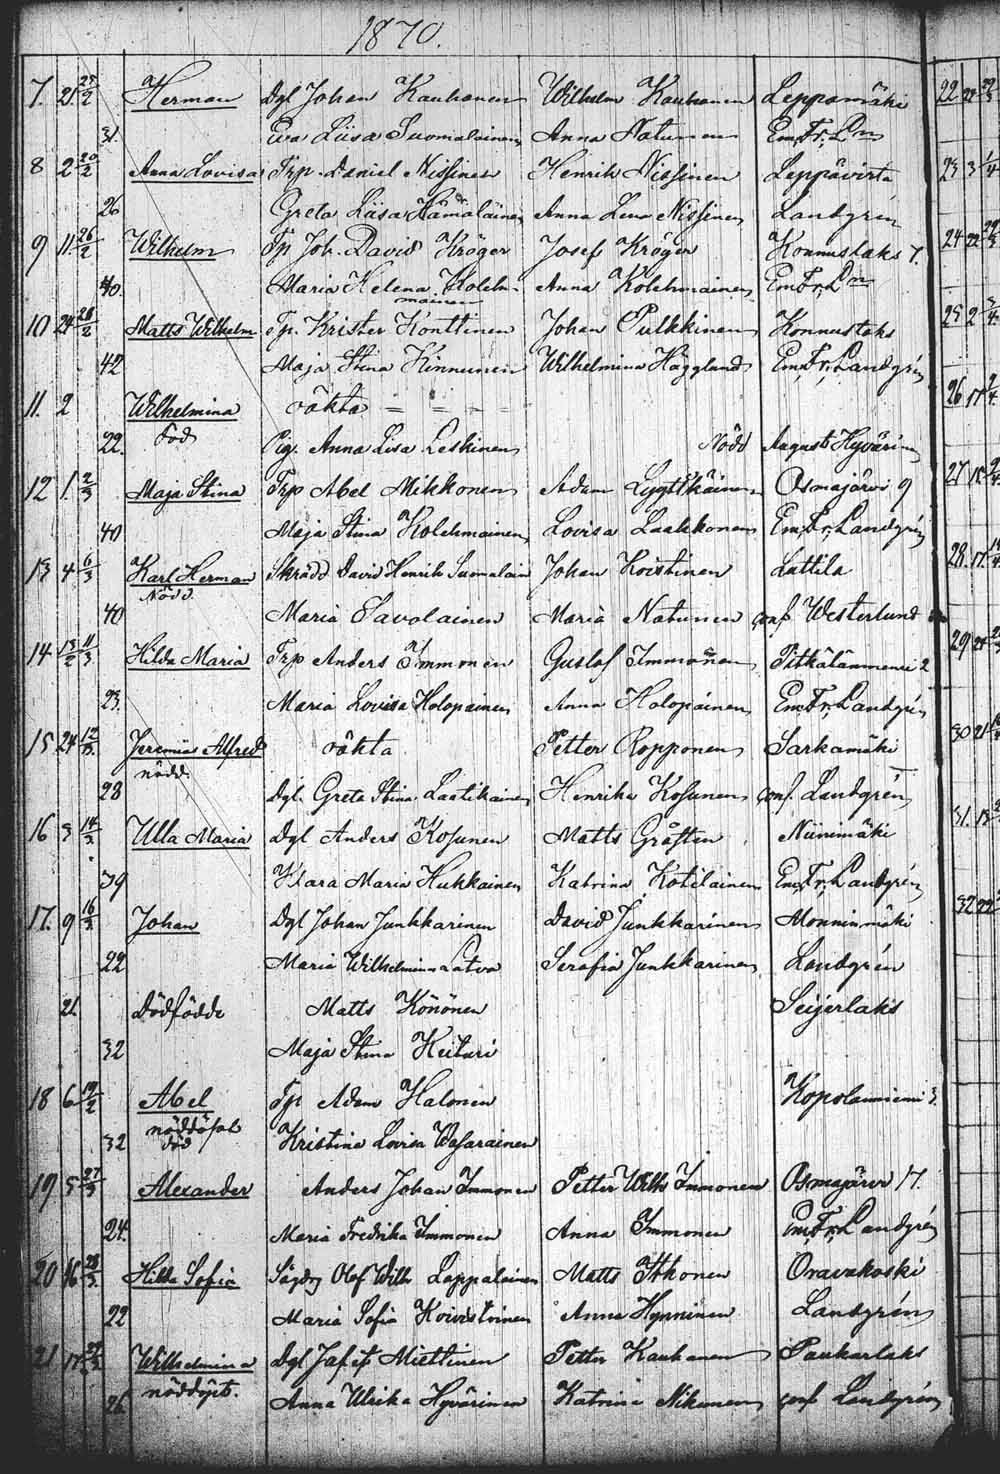 1870.
7. 21 27/2 Herman Dgl Johan Kauhanen Wilhelm Kauhanen Leppämäki
31. Eva Liisa Suomalainen Anna Natunen Em. Fr. L
8 2 20/2 Anna Lovisa Trp. Daniel Nissinen Henrik Nissinen Leppävirta
26 Greta Liisa Hämäläinen Anna Lena Nissinen Landgrén
9 11. 26/2 Wilhelm Tp Joh. David Kröger Josef Kröger Konnuslaks 7.
40. Maria Helena Koleh- Anna Kolehmainen Em. Fr. L
mainen
10 24 28/2 Matts Wilhelm Tp. Krister Konttinen Johan Pulkkinen Konnuslaks
42 Maja Stina Kinnunen Wilhelmina Hägglund Em. Fr. Landgrén
11. 2 Wilhelmina oäkta = = =
22. Död Pig. Anna Lisa Leskinen Nödd August Hyvärinen
12 1. 2/3 Maja Stina Trp Abel Mikkonen Adam Lyytikäinen Osmajärvi 9
40 Maja Stina Kolehmainen Lovisa Laakkonen Em. Fr. Landgrén
13 4 6/3 Karl Herman Skrädd David Henrik Suomalain Johan Koistinen Lattila
Nödd.
40 Maria Savolainen Maria Natunen conf Westerlund
14 13/2 11/3 Hilda Maria Trp Anders Immonen Gustaf Immonen Pitkälänniemi 2
23. Maria Lovisa Holopainen Anna Holopainen Em. Fr. Landgrén
15 24 12/3 Jeremia Alfred oäkta Petter Ropponen Sarkamäki
nödd.
28 Dgl. Greta Stina Laatikainen Henrika Kosunen conf. Landgrén
16 3 14/3 Ulla Maria Dgl Anders Kosunen Matts Gråsten Niinimäki
39 Klara Maria Hukkainen Katrina Kotilainen Em. Fr. Landgrén
17. 9 16/3 Johan Dgl Johan Junkkarinen David Junkkarinen Monninmäki
22 Maria Wilhelmina Latva Serafia Junkkarinen Landgrén
21. Dödfödde Matts Könönen Seijerlaks
32 Maja Stina Keituri
18 6 19/2 Abel Tp Adam Halonen Kopolanniemi 3.
nöddöpt
32 död Kristina Lovisa Wasarainen
19 5 27/3 Alexander Anders Johan Immonen Petter Wilh Immonen Osmajärvi 17.
24. Maria Fredrika Immonen Anna Immonen Em. Fr. Landgrén
20 16 28/3 Hilda Sofia Sågdrg Olof Wilh Lappalainen Matts Itkonen Oravakoski
22 Maria Sofia Koivistoinen Anna Hynninen Landgrén
21 17 Wilhelmina Dgl Jafet Miettinen Petter Kauhanen Paukarlaks
nöddöpt.
26. Anna Ulrika Hyvärinen Katrina Nikunen conf Landgrén
22
23 3 1/4
24 22
25 2
26 17
27
28. 17.
29
30 21
31.
32 22